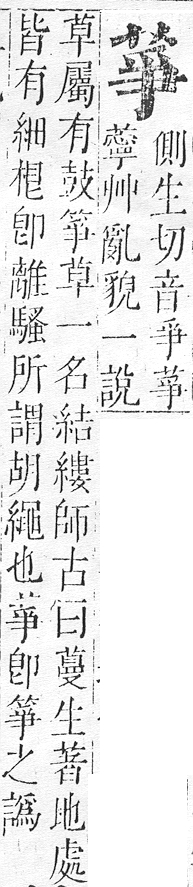 ⿱艹爭
側生切音爭⿱艹爭
薴艸亂貌一說
草屬有鼓箏草一名結縷師古曰蔓生著地處
皆有細根卽離騷所謂胡繩也⿱艹爭卽箏之譌